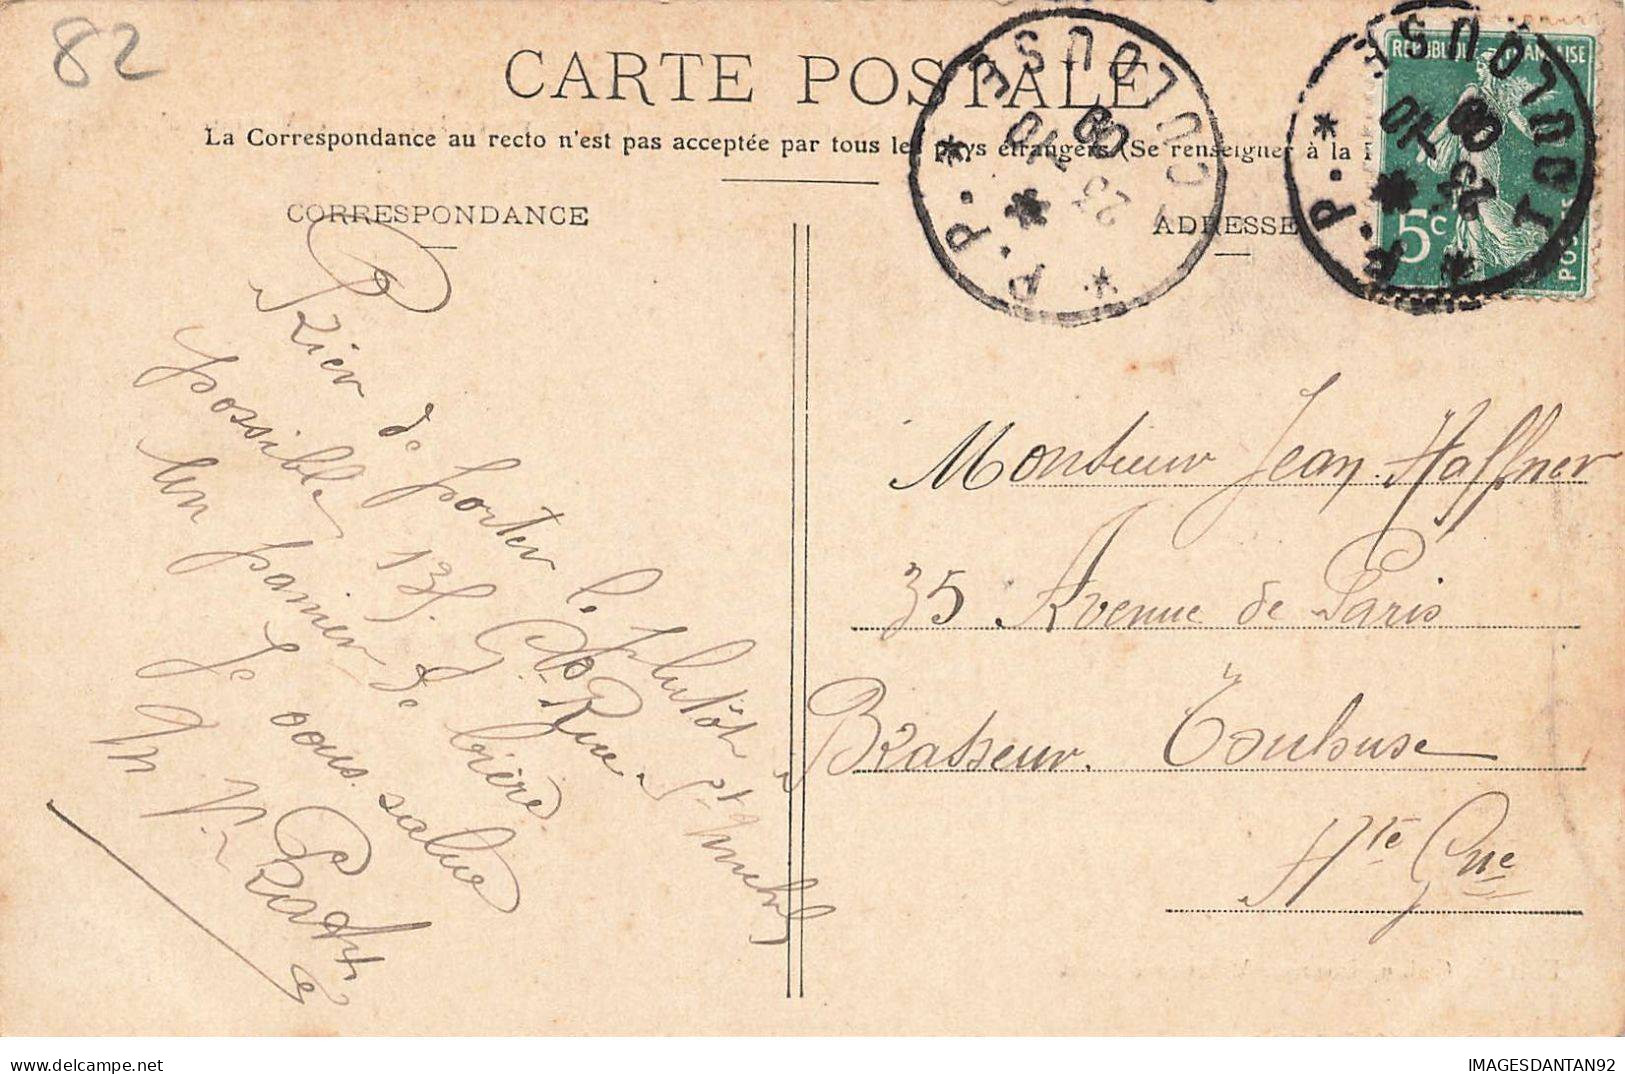 82
CARTE POSTALE
La Correspondance au recto n'est pas acceptée par tous les pays étrangers (Se renseigner à la
CORRESPONDANCE
ADRESSE
TOULOUSE
* P.P. *
23
10
09
TOULOUSE
* P.P. *
23
10
09
REPUBLIQUE FRANÇAISE
5c
POSTES
Prier de porter le plutôt
possible 135. Gde Rue St Michel
un panier de bière
Je vous salue
Monsieur Jean Haffner
35 Avenue de Paris
Brasseur. Toulouse
Hte Gne
IMAGESDANTAN92